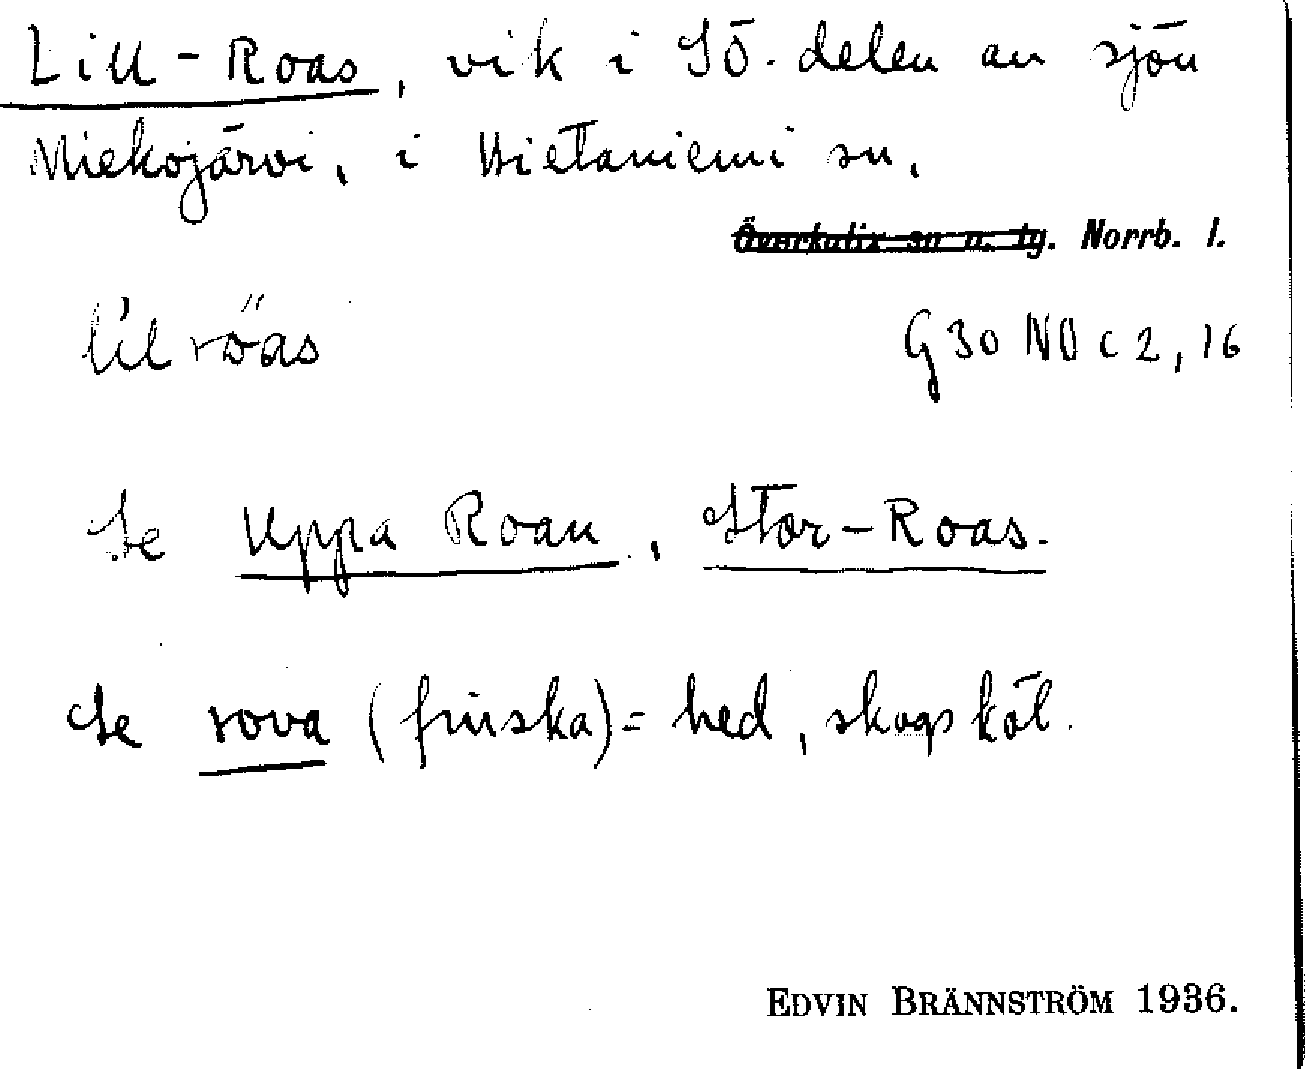 Lill-Roas, vik i SÖ. delen av sjön
Miekojärvi, i Hietaniemi sn,
Överkalix sn o. tg. Norrb. l.
G 30 NO c 2, 16
Se Uppa Roan, Stor-Roas.
Se rova (finska) = hed, skogskäl.
EDVIN BRÄNNSTRÖM 1936.